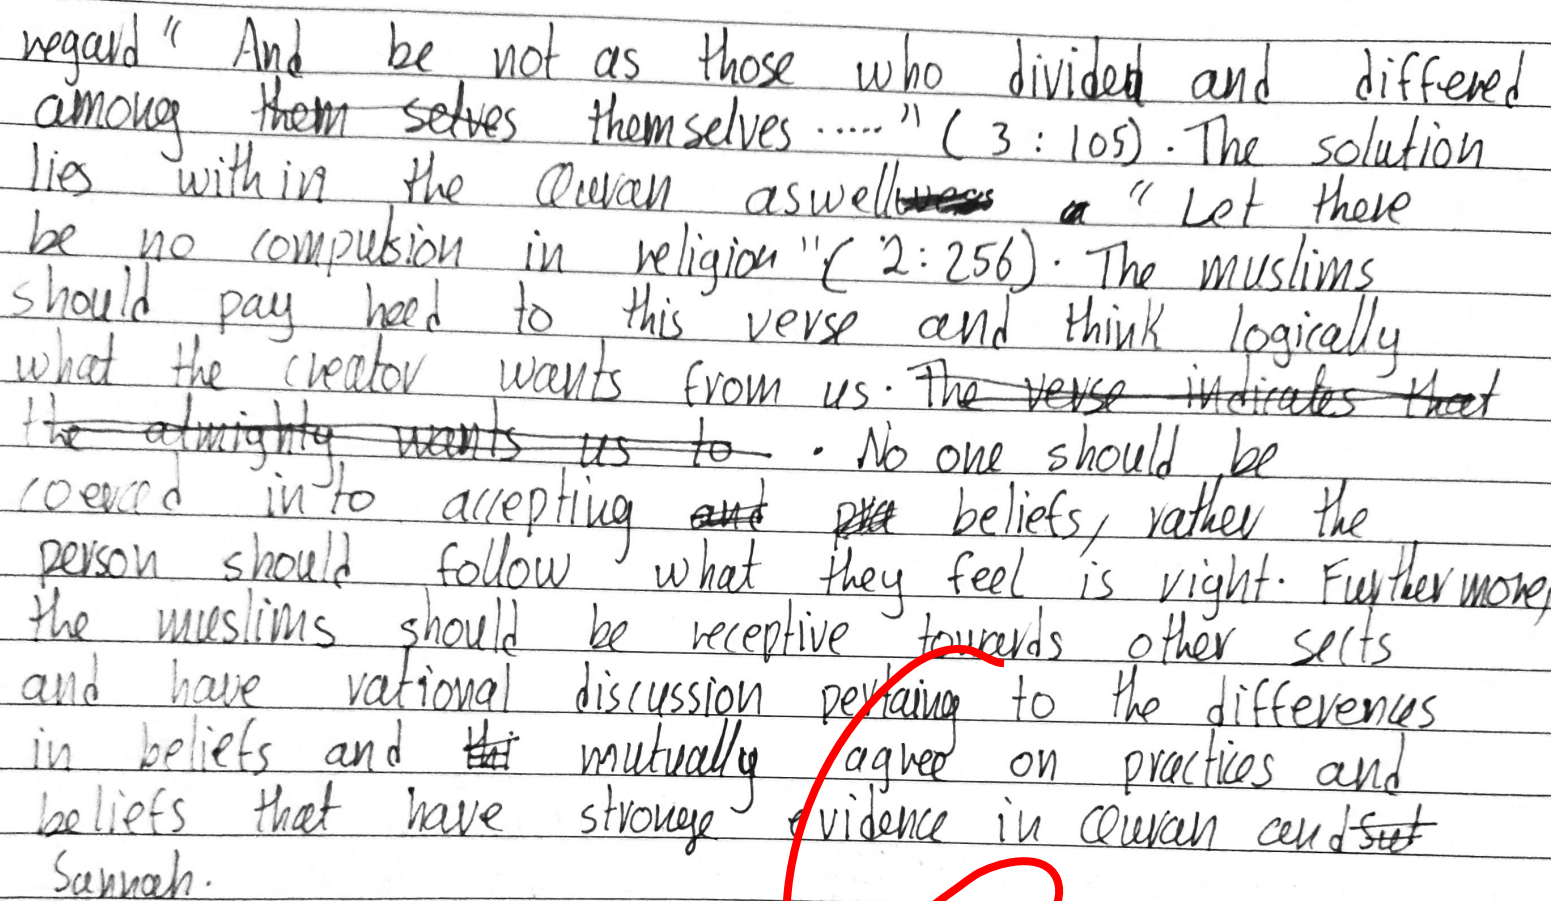 regard " And be not as those who divided and differed
among them selves themselves ..... " ( 3 : 105) . The solution
lies within the Quran aswell " Let there
be no compulsion in religion " ( 2 : 256) . The muslims
should pay heed to this verse and think logically
what the creator wants from us . The verse indicates that
the almighty wants us to . No one should be
coerced into accepting and beliefs, rather the
person should follow what they feel is right. Furthermore,
the muslims should be receptive towards other sects
and have rational discussion pertaing to the differences
in beliefs and mutually agree on practices and
beliefs that have stronge evidence in Quran and
Sunnah.